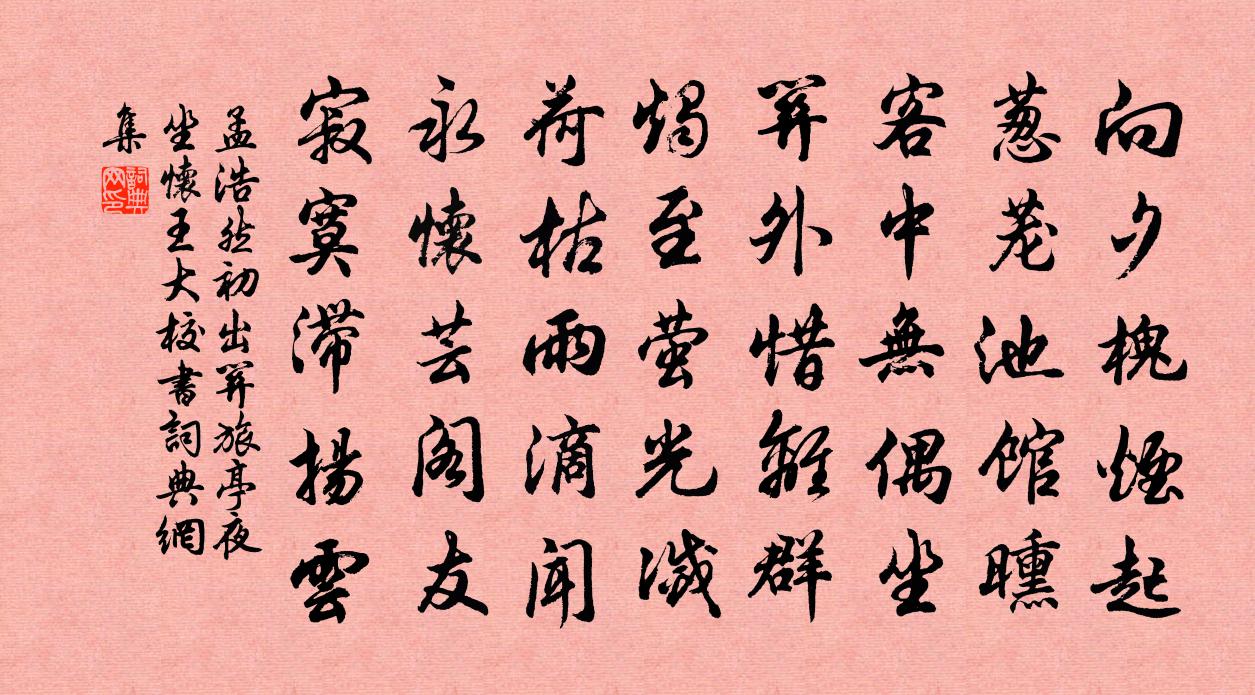 向夕槐煙起
葱茏池館曛
客中無偶坐
關外惜離群
燭至螢光滅
荷枯雨滴聞
永懷芸閣友
寂寞滯揚雲
孟浩然初出關旅亭夜
坐懷王大校書詞典網
集
詞典
网印